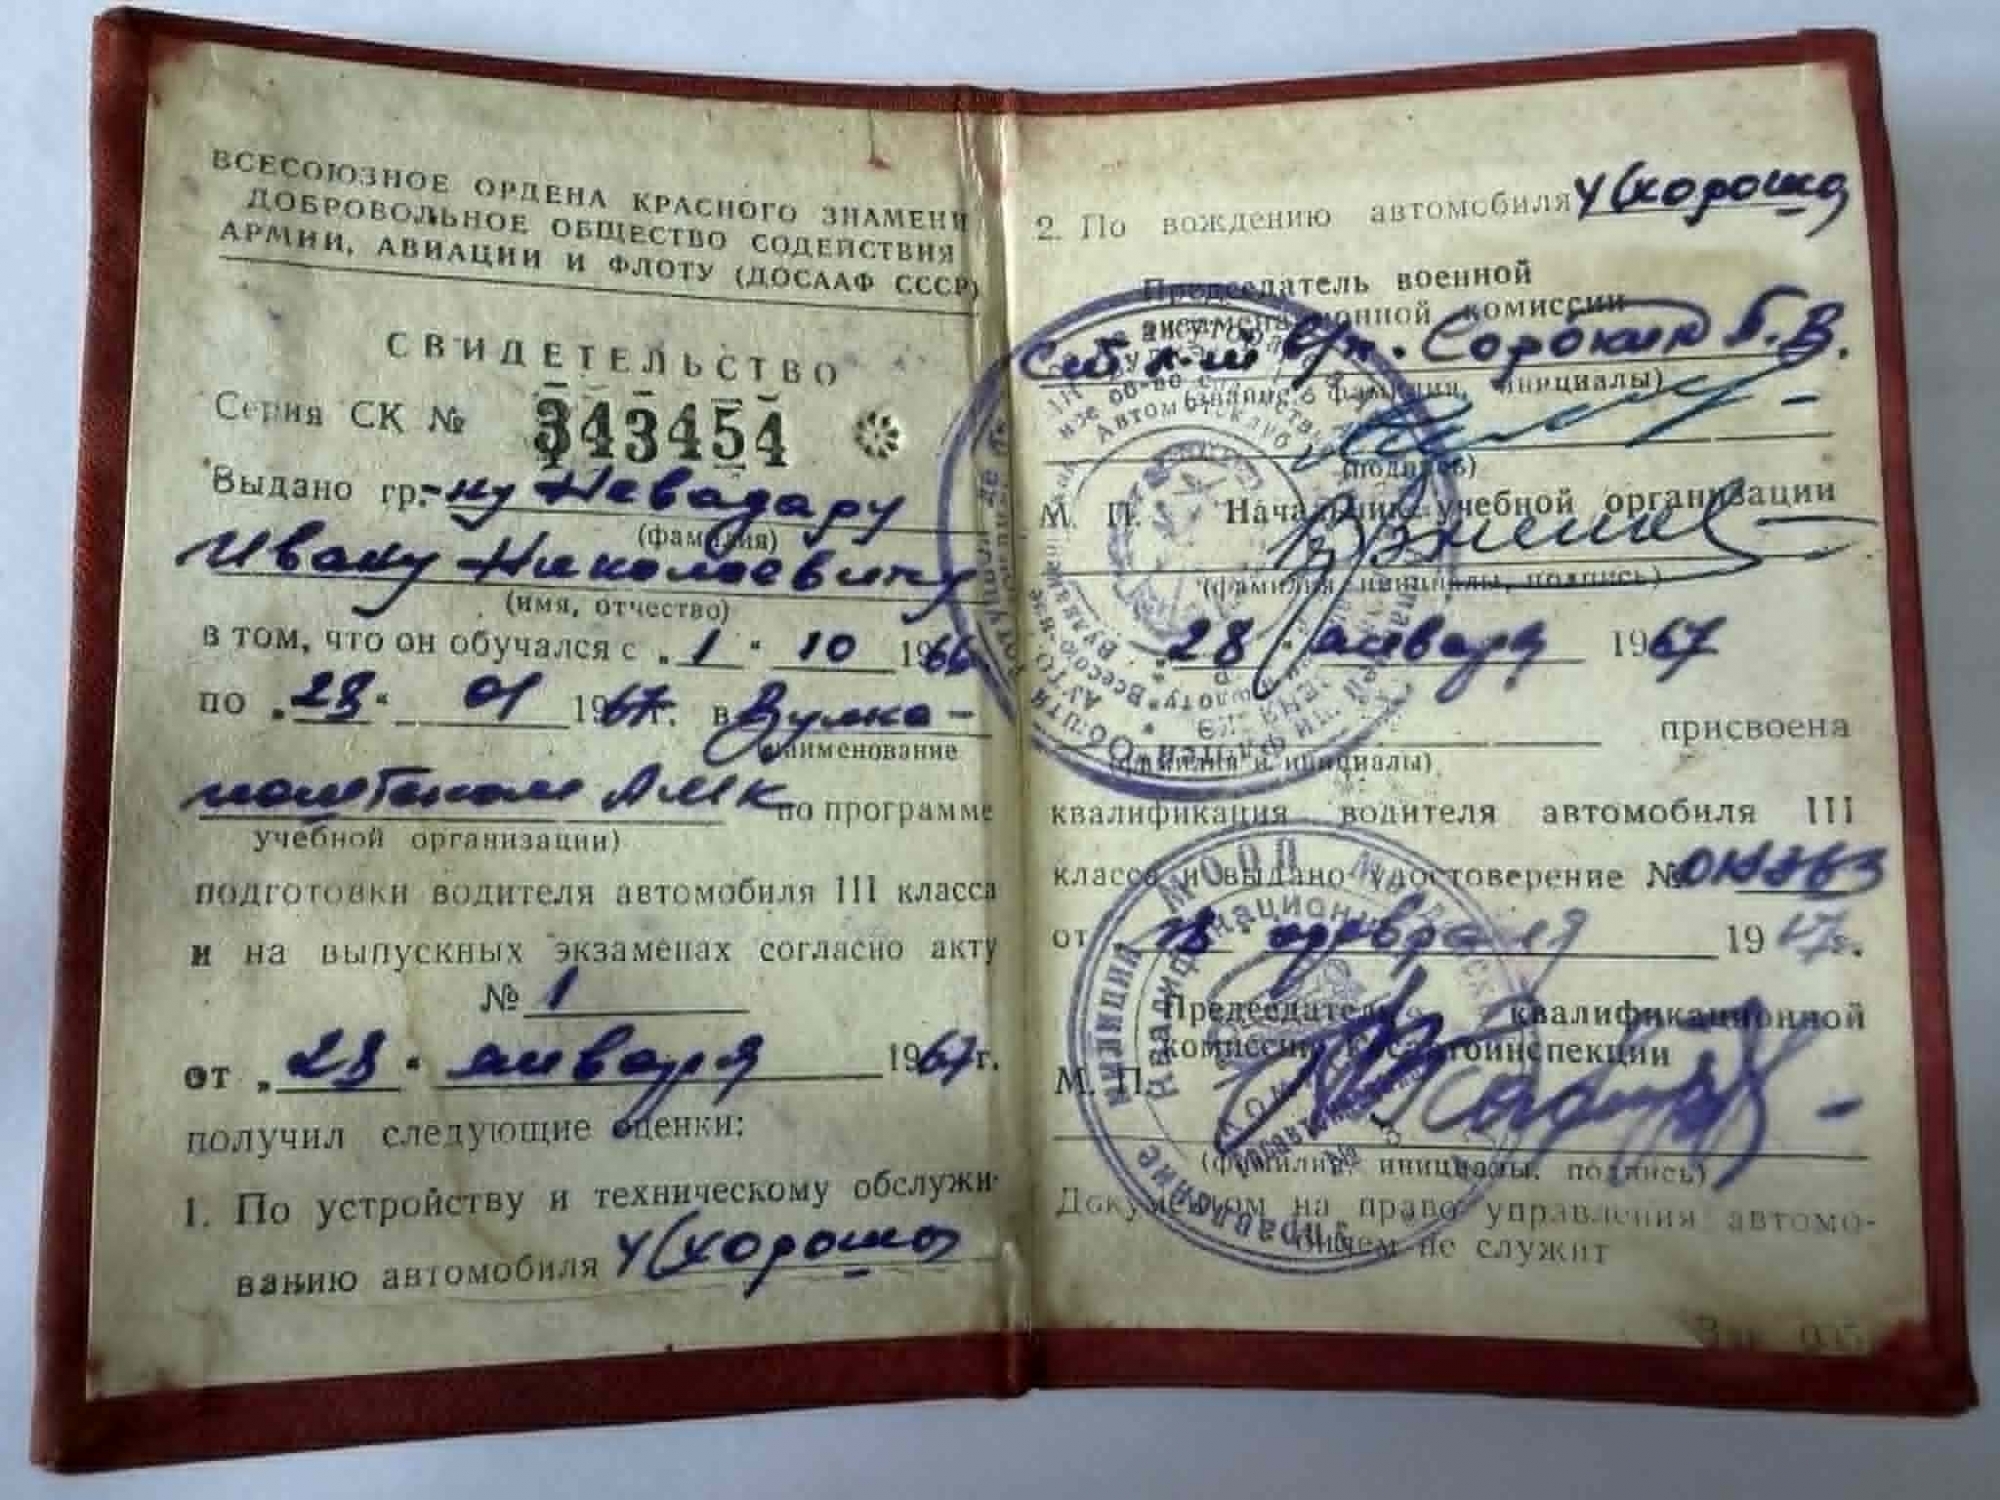 ВСЕСОЮЗНОЕ ОРДЕНА КРАСНОГО ЗНАМЕНИ
ДОБРОВОЛЬНОЕ ОБЩЕСТВО СОДЕЙСТВИЯ
АРМИИ, АВИАЦИИ И ФЛОТУ (ДОСААФ СССР)
СВИДЕТЕЛЬСТВО
Серия СК № 343454
Выдано гр.-ну Невадару
(фамилия)
Ивану Николаевичу
(имя, отчество)
в том, что он обучался с „1" 10 1966
по „28" 01 1967г. в Вулка-
наименование
нештском АМК по программе
учебной организации)
подготовки водителя автомобиля III класса
и на выпускных экзаменах согласно акту
№ 1
от „28" января 1967г.
получил следующие оценки:
1. По устройству и техническому обслужи-
ванию автомобиля 4(хорошо)
2. По вождению автомобиля 4(хорошо)
Председатель военной
экзаменационной комиссии
Сорокин Б.В.
(звание, фамилия, инициалы)
(подпись)
М. П. Начальник учебной организации
(фамилия, инициалы, подпись)
28 января 1967
присвоена
(фамилия и инициалы)
квалификация водителя автомобиля III
класса и выдано удостоверение №
от 18 февраля 1967г.
Председатель квалификационной
комиссии Госавтоинспекции
М. П.
(фамилия, инициалы, подпись)
Документом на право управления автомо-
билем не служит